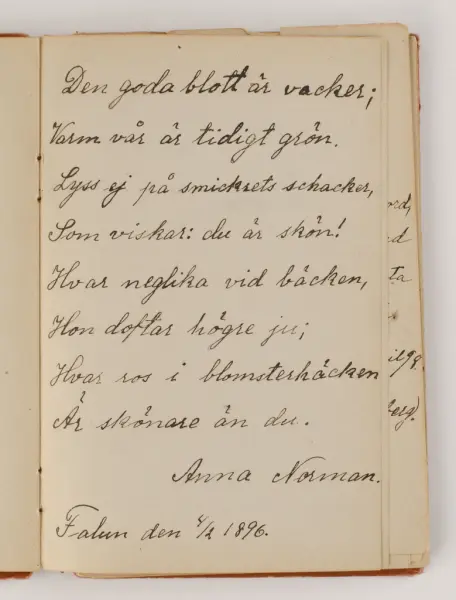 Den goda blott är vacker;
Varm vår är tidigt grön.
Lyss ej på smickrets schacker,
Som viskar: du är skön!
Hvar neglika vid bäcken,
Hon doftar högre ju;
Hvar ros i blomsterhäcken
Är skönare än du.
Anna Norman.
Falun den 4/2 1896.